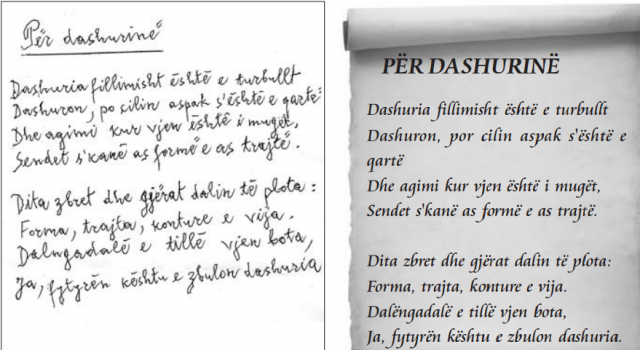 Për dashurinë
Dashuria fillimisht është e turbullt
Dashuron, po cilin aspak s'është e qartë
Dhe agimi kur vjen është i mugët,
Sendet s'kanë as formë e as trajtë.
Dita zbret dhe gjërat dalin të plota:
Forma, trajta, konture e vija.
Dalngadalë e tillë vjen bota,
Ja, fytyrën kështu e zbulon dashuria
PËR DASHURINË
Dashuria fillimisht është e turbullt
Dashuron, por cilin aspak s'është e
qartë
Dhe agimi kur vjen është i mugët,
Sendet s'kanë as formë e as trajtë.
Dita zbret dhe gjërat dalin të plota:
Forma, trajta, konture e vija.
Dalëngadalë e tillë vjen bota,
Ja, fytyrën kështu e zbulon dashuria.